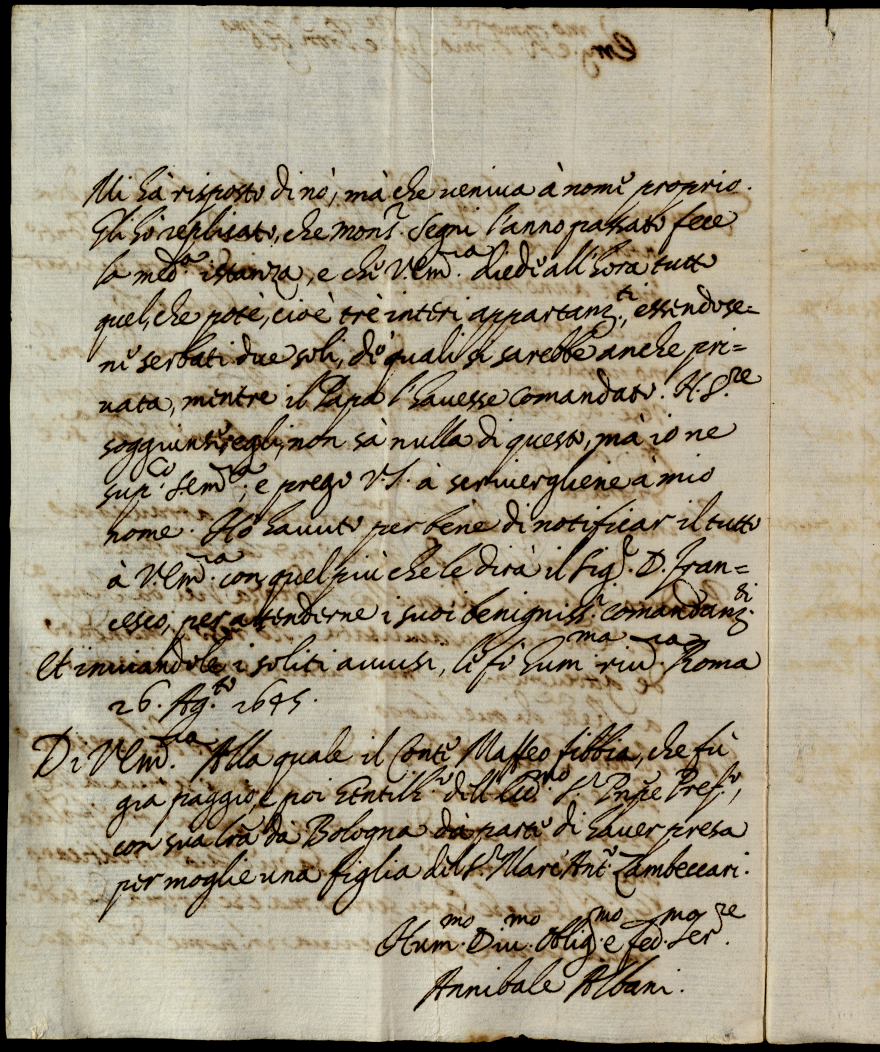 Mi hà risposto di nò, mà che ueniua à nome proprio.
Gli hò replicato, che Mons.r Segni l'anno passato fece
la med.a istanza, e che V.Em.za diede all'hora tutto
quel, che potè, cioè trè interi appartam.ti, essendose=
ne serbati due soli, de quali si sarebbe anche pri=
uata, mentre il Papa l'hauesse comandato. Il S.re
soggiunse, egli non sà nulla di questo, mà io ne
sup.co S.Em.za, e prego V.S. à scriuergliene à mio
nome. Hò hauuto per bene di notificar il tutto
à V.Em.za con quel più che le dirà il Sig.r D. Fran=
cesco, per attenderne i suoi benigniss.i comandam.ti
Et inuiandole i soliti auuisi, le fò hum.ma riu.za Roma
26. Ag.to 1645.
Di V.Em.za Alla quale il Conte Maffeo fibbia, che fù
già paggio, e poi Gentilh.o dell' S.r Pnñe Pref.o,
con sua lrã da Bologna dà parte di hauer presa
per moglie una figlia del S.r Marc'Ant.o Zambeccari.
Hum.mo Diu.mo Oblig.mo e fed.mo Ser.re
Annibale Albani.